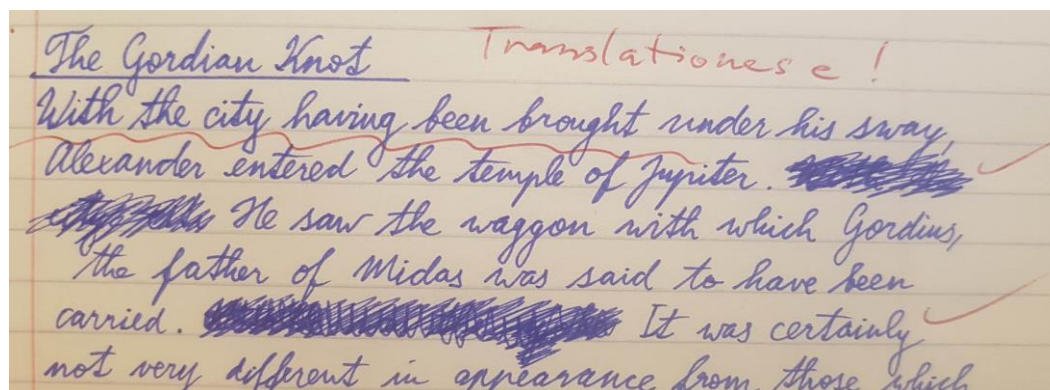 The Gordian Knot Translationese!
With the city having been brought under his sway,
Alexander entered the temple of Jupiter.
He saw the waggon with which Gordius,
the father of Midas was said to have been
carried. It was certainly
not very different in appearance from those which